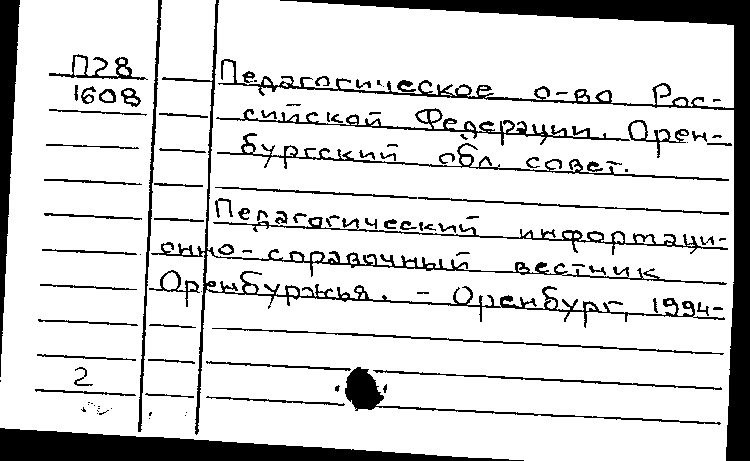 П28
1608
Педагогическое о-во Рос-
сийской Федерации. Орен-
бургский обл. совет.
Педагогический информаци-
онно-справочный вестник
Оренбуржья. - Оренбург, 1994-
2